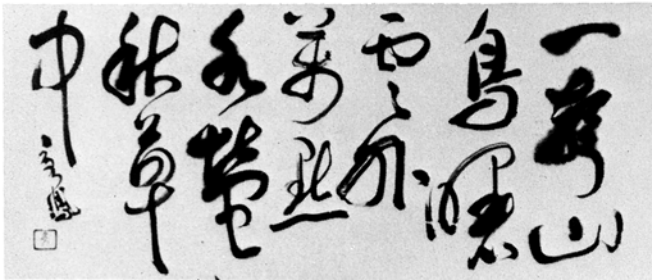 一聲山
鳥曙
雲外
萬點
水螢
秋草
中
景鳳